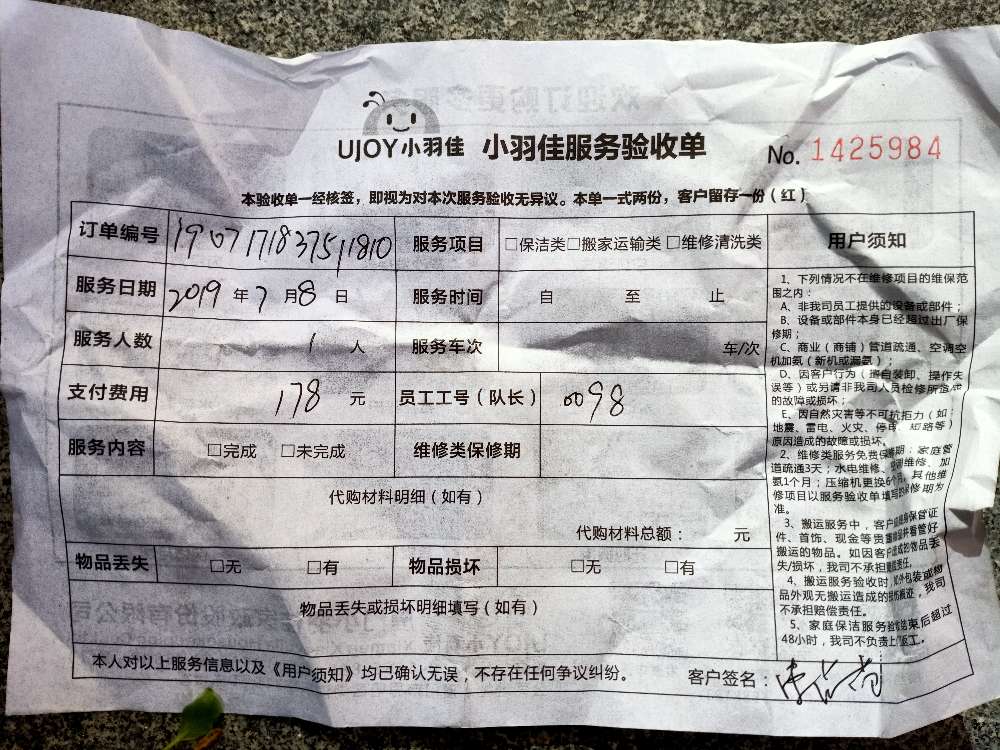 UJOY小羽佳 小羽佳服务验收单 No. 1425984
本验收单一经核签，即视为对本次服务验收无异议。本单一式两份，客户留存一份（红）
订单编号 190717183751810 服务项目 □保洁类□搬家运输类□维修清洗类
服务日期 2019年7月8日 服务时间 自 至 止
服务人数 1 人 服务车次 车/次
支付费用 178 元 员工工号（队长） 0098
服务内容 □完成 □未完成 维修类保修期
代购材料明细（如有）
代购材料总额： 元
物品丢失 □无 □有 物品损坏 □无 □有
物品丢失或损坏明细填写（如有）
本人对以上服务信息以及《用户须知》均已确认无误，不存在任何争议纠纷。 客户签名：
用户须知
1、下列情况不在维修项目的维保范
围之内：
A、非我司员工提供的设备或部件；
B、设备或部件本身已经超过出厂保
修期；
C、商业（商铺）管道疏通、空调空
机加氨（新机或漏氨）；
D、因客户行为（擅自装卸、操作失
误等）或另请非我司人员检修所造成
的故障或损坏；
E、因自然灾害等不可抗拒力（如：
地震、雷电、火灾、停电、短路等）
原因造成的故障或损坏。
2、维修类服务免费保修期：家庭管
道疏通3天；水电维修、空调维修、加
氨1个月；压缩机更换6个月，其他维
修项目以服务验收单填写的保修期为
准。
3、搬运服务中，客户应随身保管证
件、首饰、现金等贵重物品并看管好
搬运的物品。如因客户造成的物品丢
失/损坏，我司不承担赔偿责任。
4、搬运服务验收时，如外包装或物
品外观无搬运造成的损伤痕迹，我司
不承担赔偿责任。
5、家庭保洁服务验收结束后超过
48小时，我司不负责上门返工。